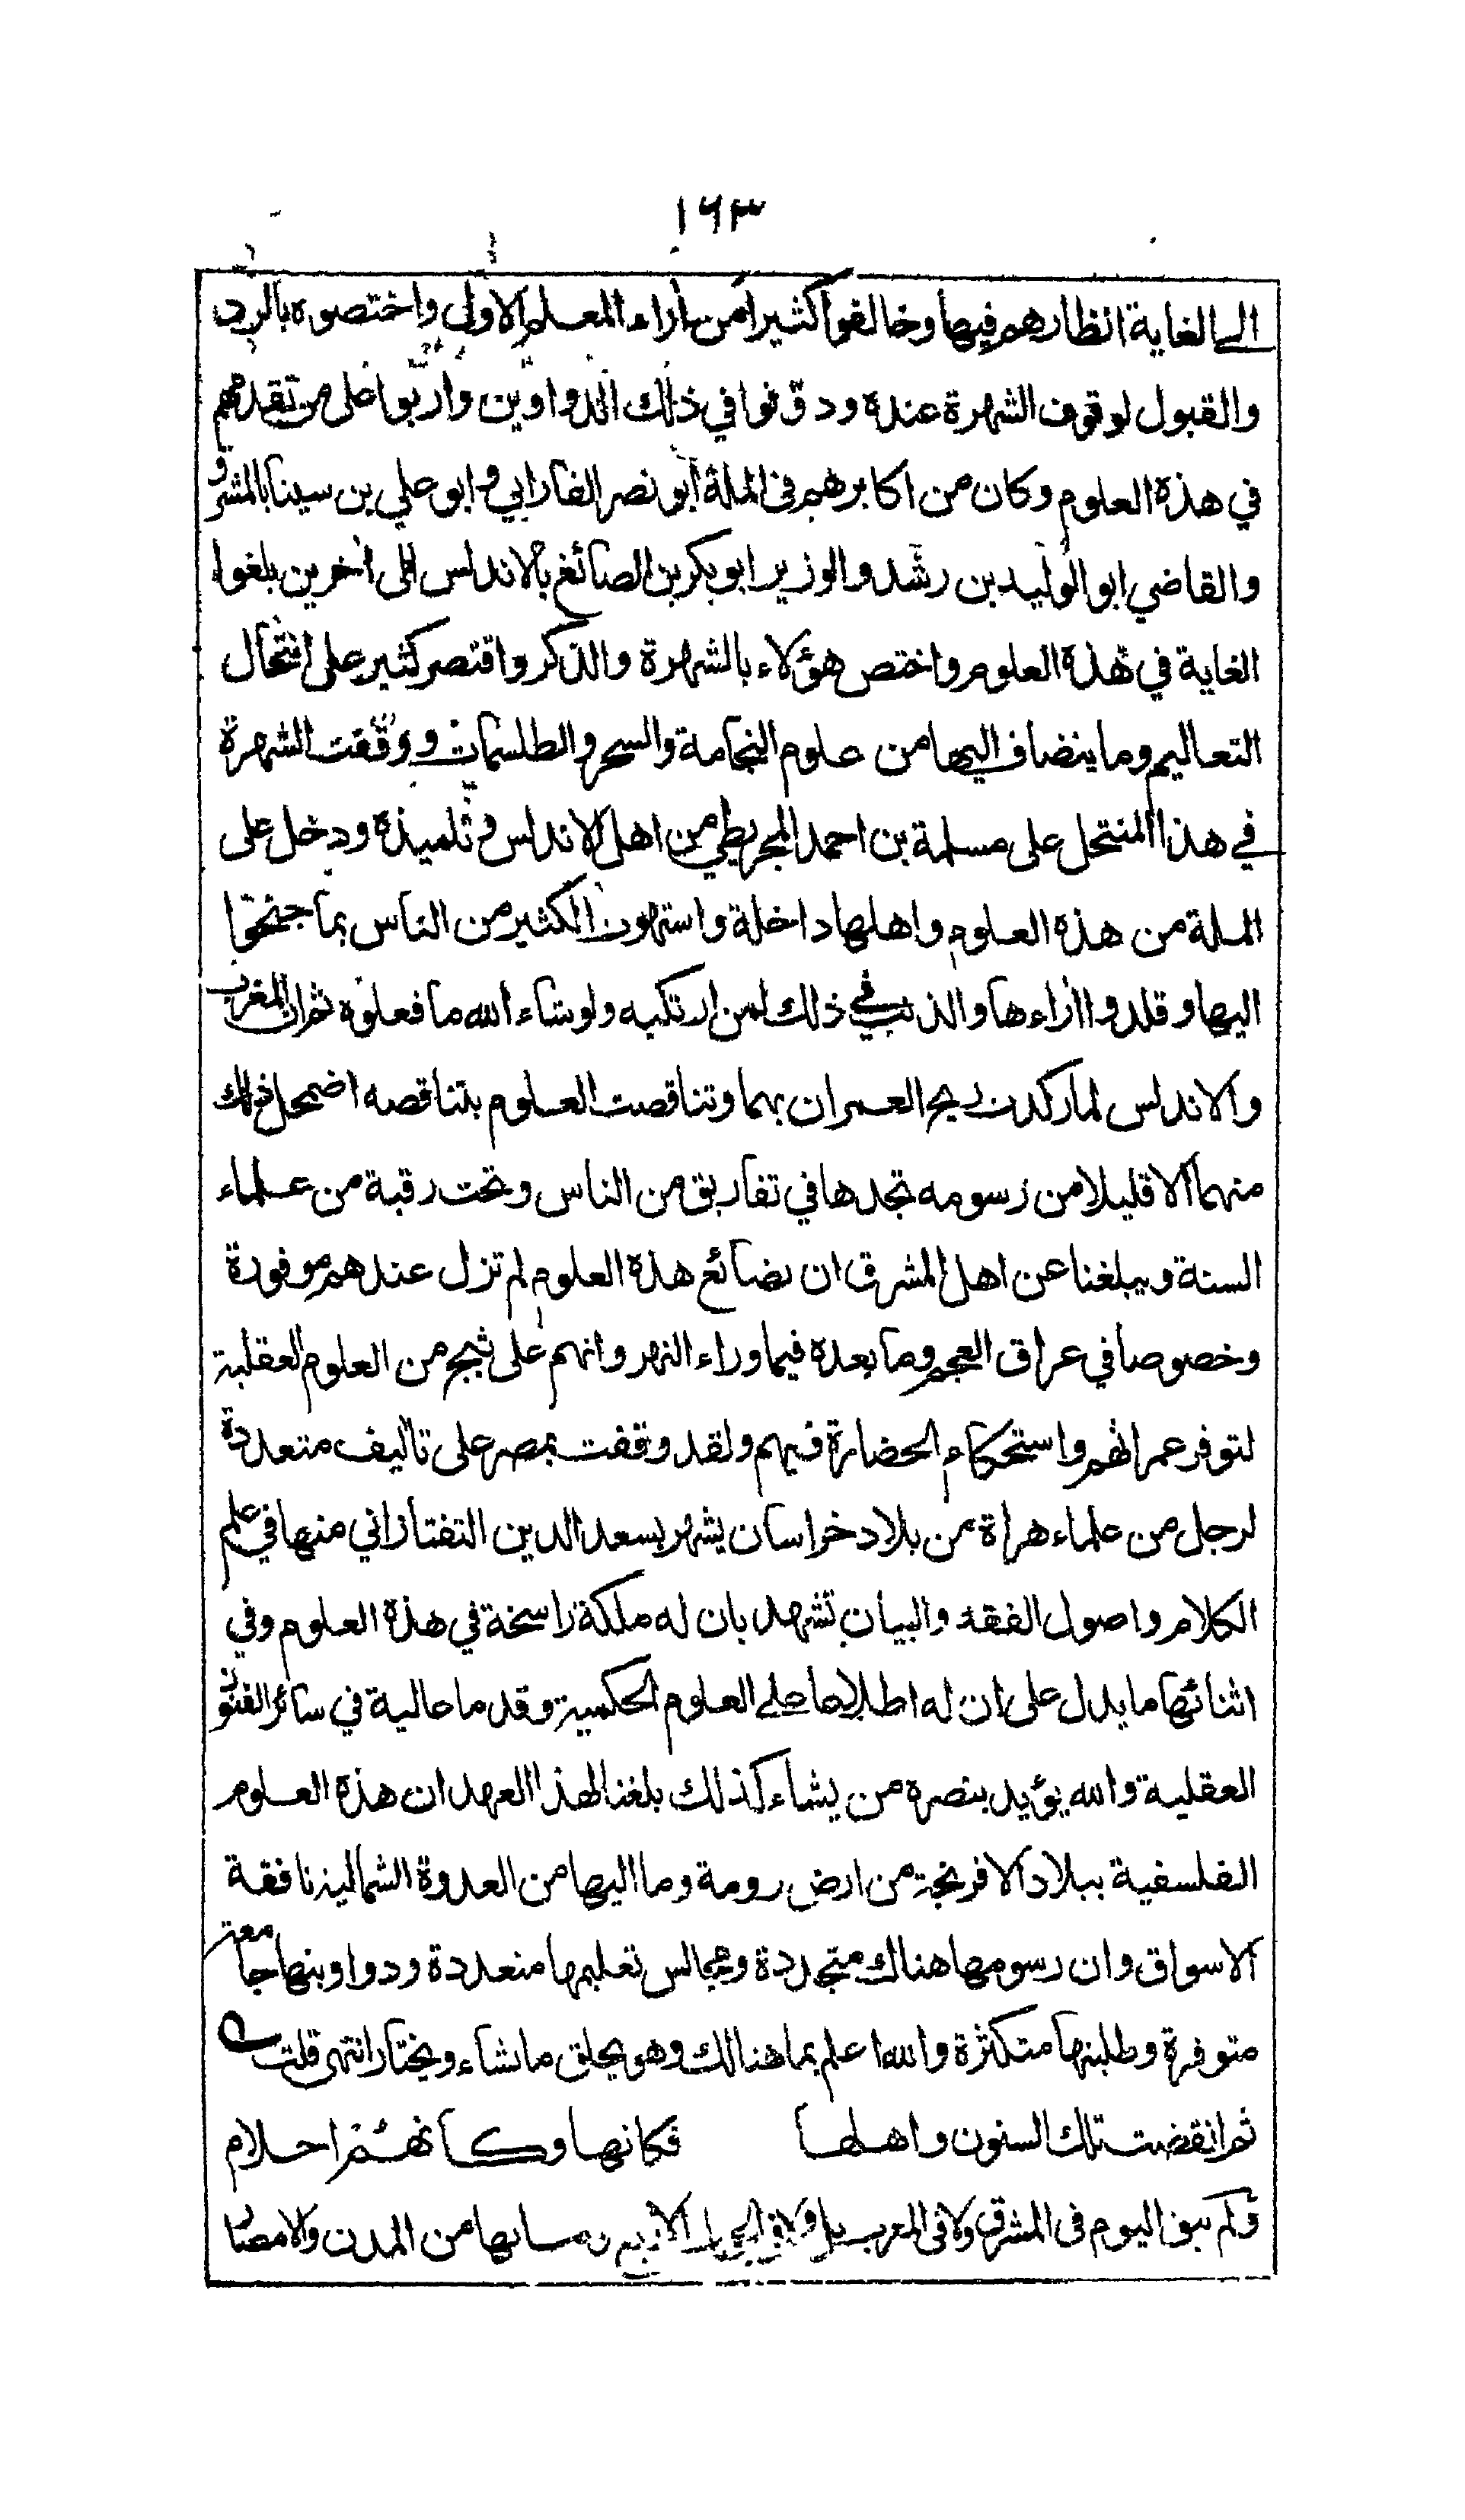 ١٦٣
الى الغاية انظارهم فيها وخالفوا كثيرا من اراء المعلم الاول واختصوه بالرد
والقبول لوقوف الشهرة عنده ودونوا في ذلك الدواوين واربوا على من تقدمهم
في هذه العلوم وكان من اكابرهم في الملة ابو نصر الفارابي وابو علي بن سينا بالمشرق
والقاضي ابو الوليد بن رشد والوزير ابو بكر بن الصائغ بالاندلس الى اخرين بلغوا
الغاية في هذه العلوم واختص هؤلاء بالشهرة والذكر واقتصر كثير على انتحال
التعاليم وما ينضاف اليها من علوم النجامة والسحر والطلسمات ووقفت الشهرة
في هذا المنتحل على مسلمة بن احمد المجريطي من اهل الاندلس وتلميذه ودخل على
الملة من هذه العلوم واهلها داخلة واستهوت الكثير من الناس بما جنحوا
اليها وقلدوا اراءها والذنب في ذلك لمن ارتكبه ولو شاء الله ما فعلوه ثم ان المغرب
والاندلس لما ركدت ريح العمران بهما وتناقصت العلوم بتناقصه اضمحل ذلك
منهما الا قليلا من رسومه تجدها في تفاريق من الناس وتحت رقبة من علماء
السنة ويبلغنا عن اهل المشرق ان بضائع هذه العلوم لم تزل عندهم موفورة
وخصوصا في عراق العجم وما بعده فيما وراء النهر وانهم على ثبج من العلوم العقلية
لتوفر عمرانهم واستحكام الحضارة فيهم ولقد وقفت بمصر على تاليف متعددة
لرجل من علماء هراة من بلاد خراسان يشهر بسعد الدين التفتازاني منها في علم
الكلام واصول الفقه والبيان تشهد بان له ملكة راسخة في هذه العلوم وفي
اثنائها ما يدل على ان له اطلاعا على العلوم الحكمية وقدما عالية في سائر الفنون
العقلية والله يؤيد بنصره من يشاء كذلك بلغنا لهذا العهد ان هذه العلوم
الفلسفية ببلاد الافرنجة من ارض رومة وما اليها من العدوة الشمالية نافقة
الاسواق وان رسومها هناك متجددة ومجالس تعليمها متعددة ودواوينها جامعة
متوفرة وطلبتها متكثرة والله اعلم بما هنالك وهو يخلق ما يشاء ويختار انتهى قلت
ثم انقضت تلك السنون واهلها فكانها وكانهم احلام
ولم يبق اليوم في المشرق ولا في المغرب بل ولا في من المدن والامصار